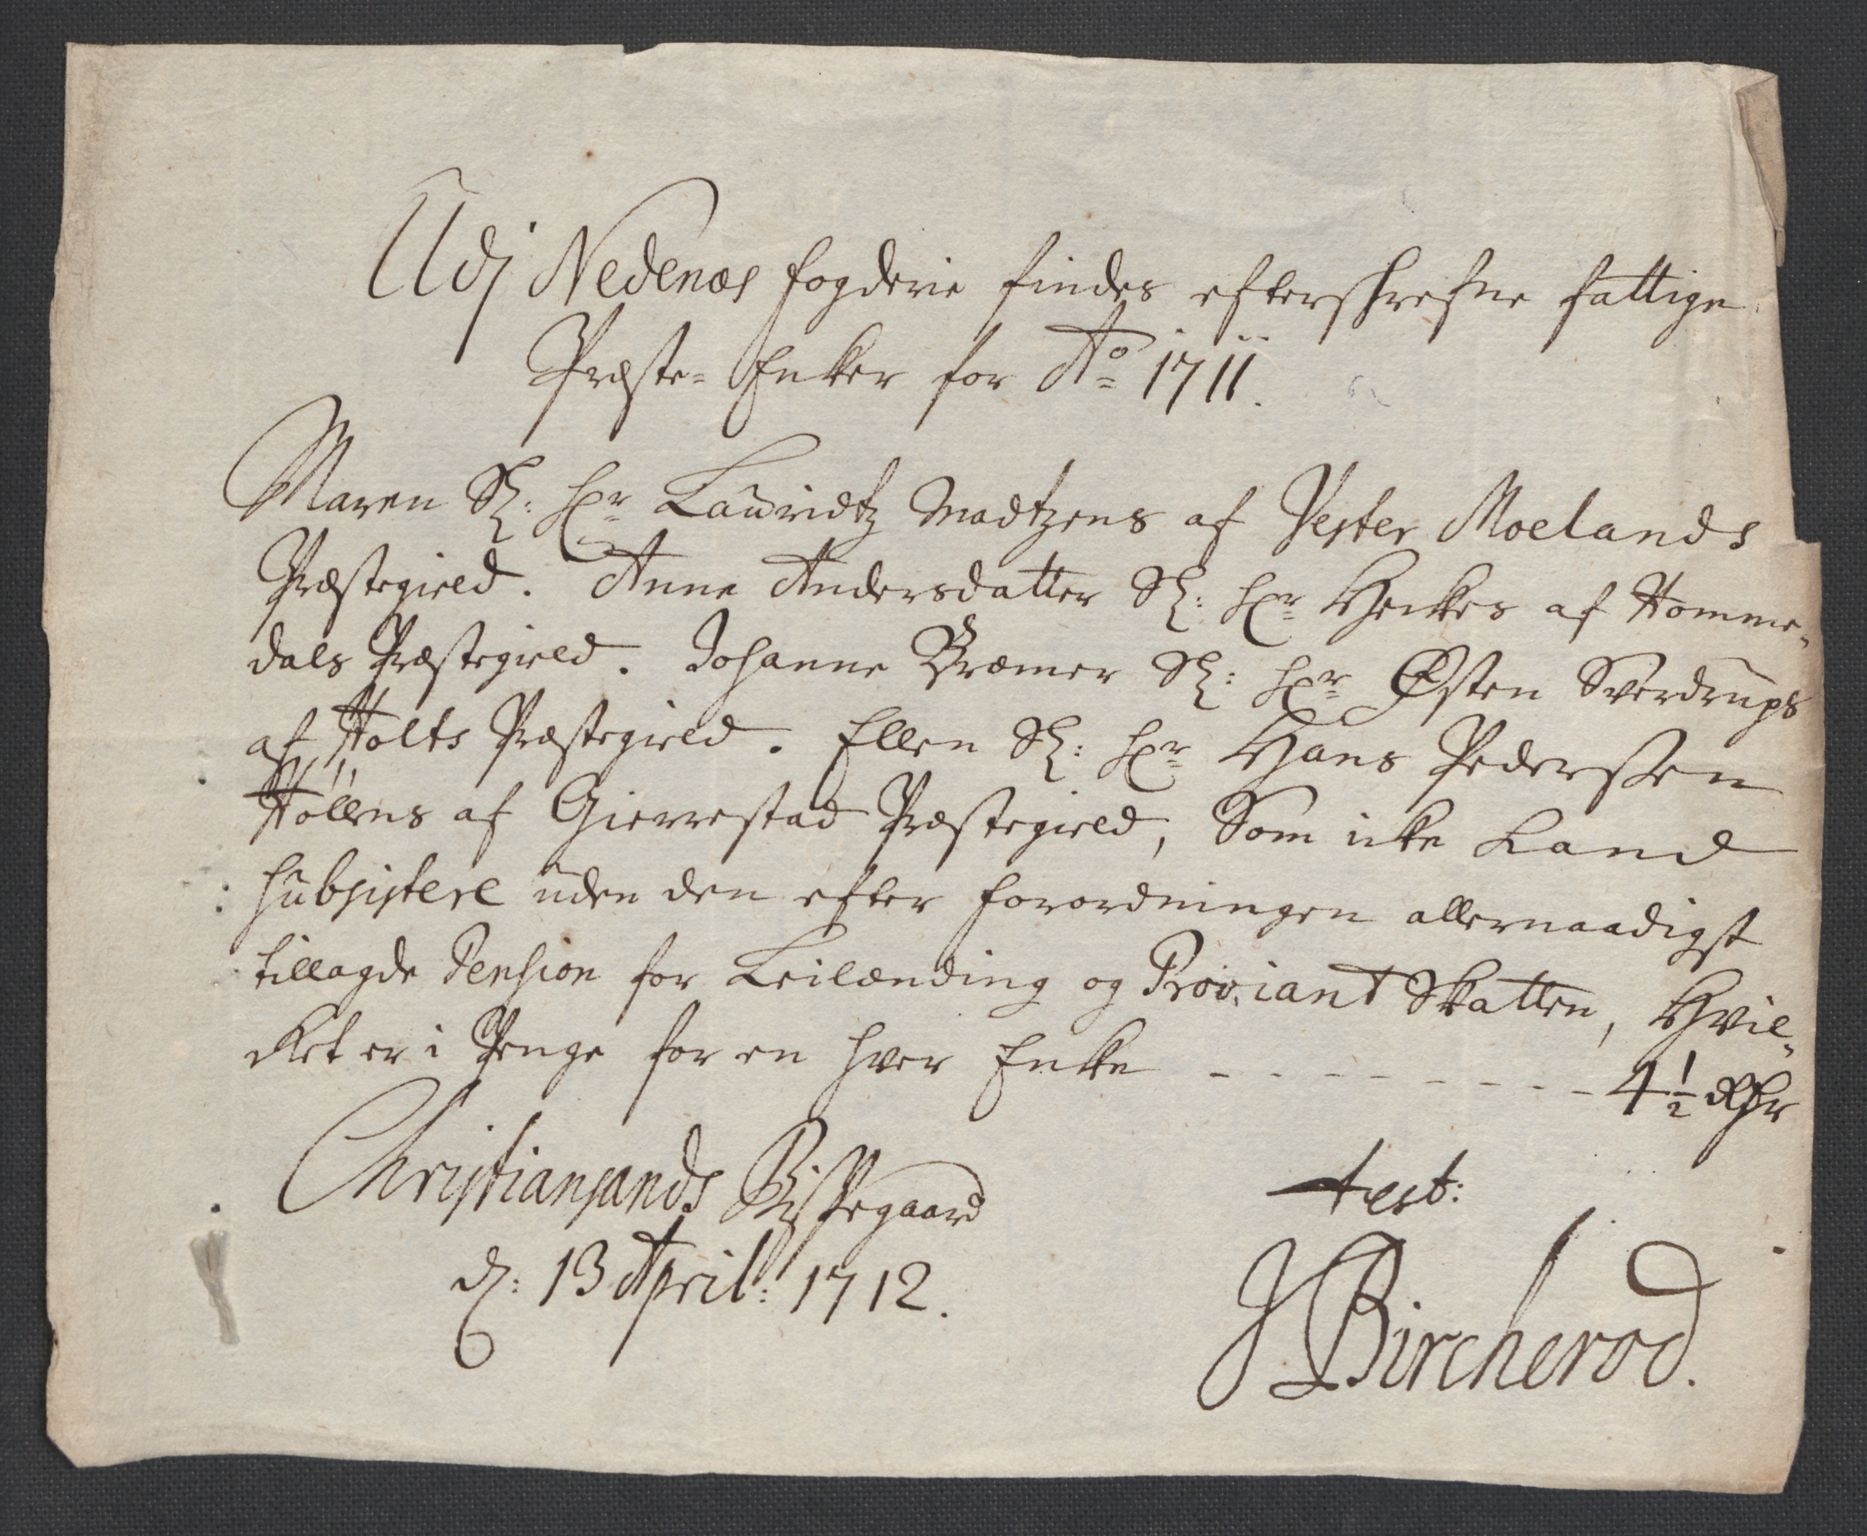 Udj Nedenæs fogderie findes efterschrefne fattige
Præste-Enker for Ao 1711.
Maren Sl: Hr Lauridtz Madtzens af Vester Moelands
Præstegield. Anne Andersdatter Sl: Hr Heckes af Homme-
dals Præstegield. Johanne Bræmer Sl: Hr Østen Sverdrups
af Holts Præstegield. Ellen Sl: Hr Hans Pederssen
Höllens af Gierrestad Præstegield, Som icke kand
subsistere uden den efter forordningen allernaadigst
tillagde Pension for Leilænding og Proviant Skatten, Hvil-
cket er i Penge for en hver Encke - - - - - - - - 4 1/2 Rdr
Christiansands Bispegaard
d: 13 April: 1712.
test:
J Bircherod.